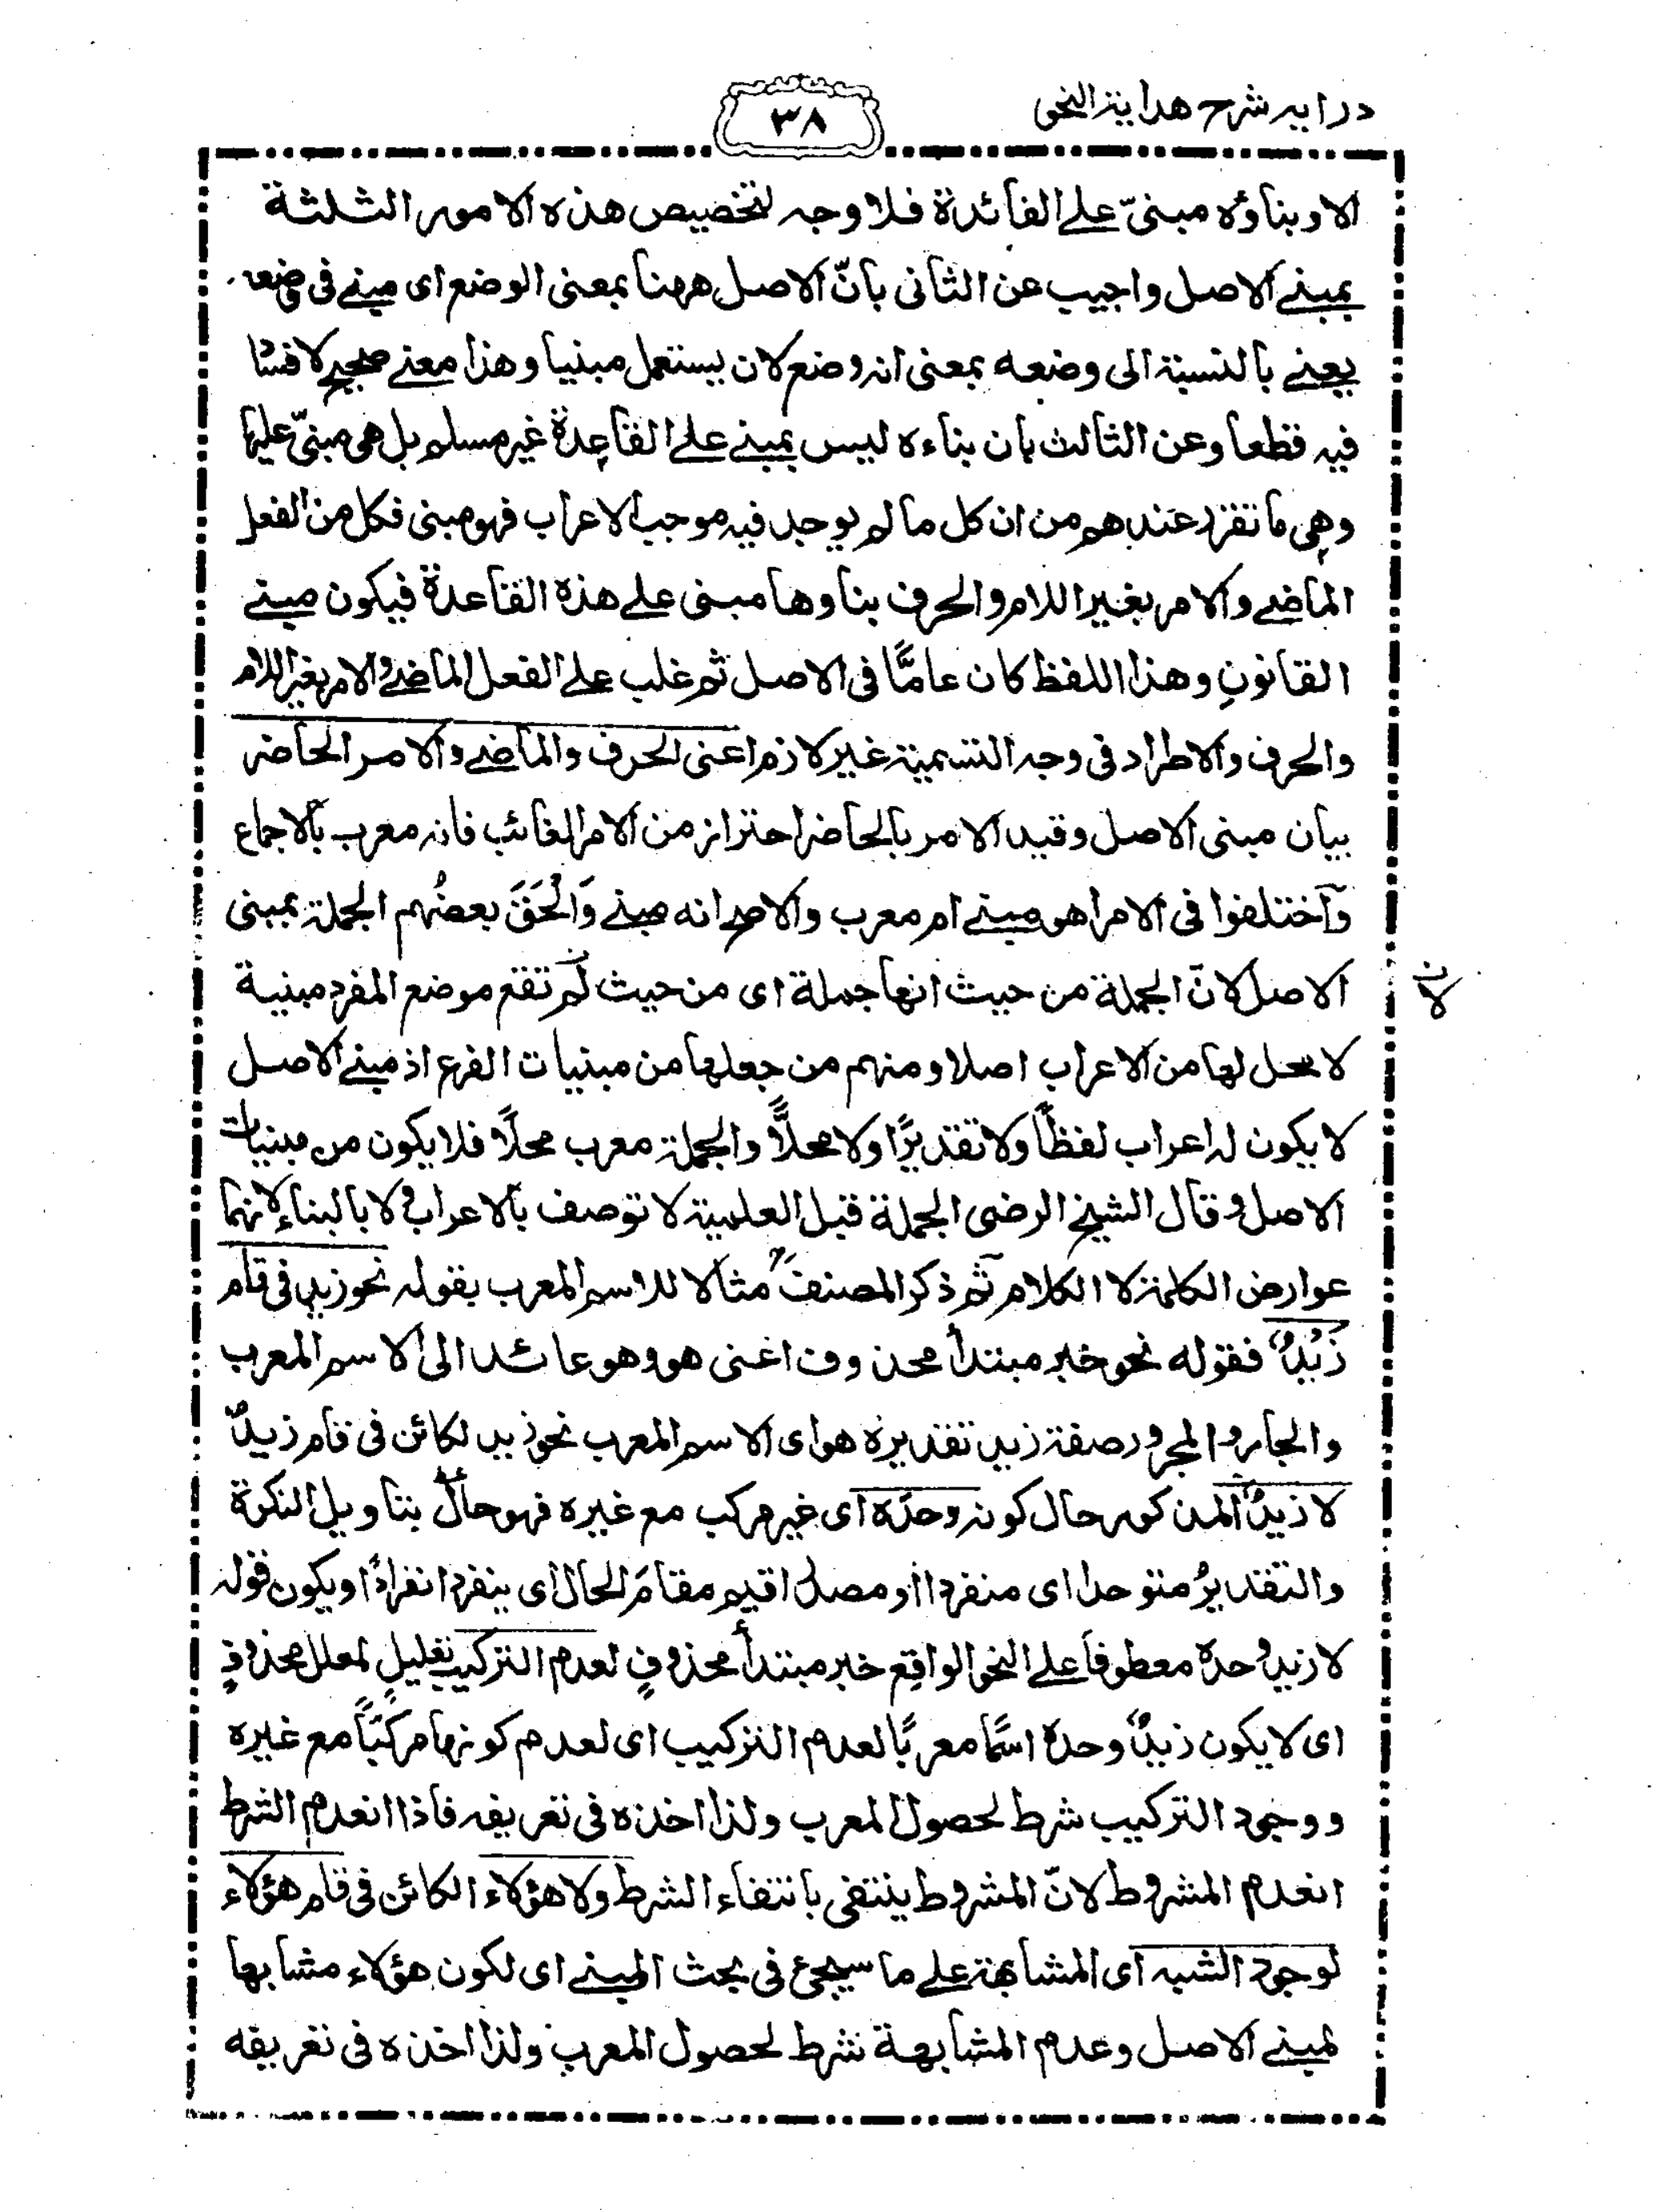 درایہ شرح ھدایة النحو
۳۸
الا وبناؤه مبنیّ علی الفائدة فلا وجہ لتخصیص ھذہ الامور الثلثة
بمبنی الاصل واجیب عن الثانی بانّ الاصل ھھنا بمعنی الوضع ای مبنی فی وضعہ
یعنی بالنسبة الی وضعہ بمعنی انہ وضع لان یستعمل مبنیا وھذا معنی صحیح لا فساد
فیہ قطعا وعن الثالث بان بناءہ لیس بمبنی علی القاعدة غیر مسلم بل ھی مبنیّ علیھا
وھی ما تقرر عندھم من ان کل ما لم یوجد فیہ موجب الاعراب فھو مبنی فکل من الفعل
الماضی والامر بغیر اللام والحرف بناوھا مبنی علی ھذہ القاعدة فیکون مبنی
القانونِ وھذا اللفظ کان عامًّا فی الاصل ثم غلب علی الفعل الماضی والامر بغیر اللام
والحرف والاطراد فی وجہ التسمیة غیر لازم اعنی الحرف والماضی والامر الحاضر
بیان مبنی الاصل وقید الامر بالحاضر احتراز من الامر الغائب فانہ معرب بالاجماع
وٱختلفوا فی الامر اھو مبنی ام معرب والاصح انہ مبنی وَالْحَقَ بعضُھم الجملة بمبنی
الاصل لانّ الجملة من حیث انھا جملة ای من حیث لم تقع موضع المفرد مبنیة
لا محل لھا من الاعراب اصلا ومنھم من جعلھا من مبنیات الفرع اذ مبنی الاصل
لا یکون لہ اعراب لفظاً ولا تقدیرًا ولا محلاًّ والجملة معرب محلًا فلا یکون من مبنیات
الاصل وقال الشیخ الرضی الجملة قبل العلمیة لا توصف بالاعراب ولا بالبناء لانھما
عوارض الکلمة لا الکلام ثم ذکر المصنفؒ مثالا للاسم المعرب بقولہ نحو زید فی قام
زَیْدٌ فقولہ نحو خبر مبتدأ محذوف اعنی ھو وھو عائد الی الاسم المعرب
والجار والمجرور صفة زید تقدیرہ ھو ای الاسم المعرب نحو زید لکائن فی قام زیدٌ
لا زیدٌ المذکور حال کونہ وحدَہ ای غیر مرکب مع غیرہ فھو حالٌ بتاویل النکرة
والتقدیرُ متوحدا ای منفردا او مصدر اقیم مقامَ الحال ای ینفرد انفرادً او یکون قولہ
لا زید وحدہ معطوفاً علی النحو الواقع خبر مبتدأ محذوفٍ لعدم الترکیب تعلیل لمعلل محذوفٍ
ای لا یکون زیدٌ وحدہ اسمًا معربًا لعدم الترکیب ای لعدم کونھا مرکبًا مع غیرہ
ووجود الترکیب شرط لحصول المعرب ولذا اخذہ فی تعریفہ فاذا انعدم الشرط
انعدم المشروط لانّ المشروط ینتفی بانتفاء الشرط ولا ھؤلاء الکائن فی قام ھؤلاء
لوجود الشبہ ای المشابھة علی ما سیجئ فی بحث المبنی ای لکون ھؤلاء مشابھا
لمبنی الاصل وعدم المشابھة شرط لحصول المعرب ولذا اخذہ فی تعریفہ